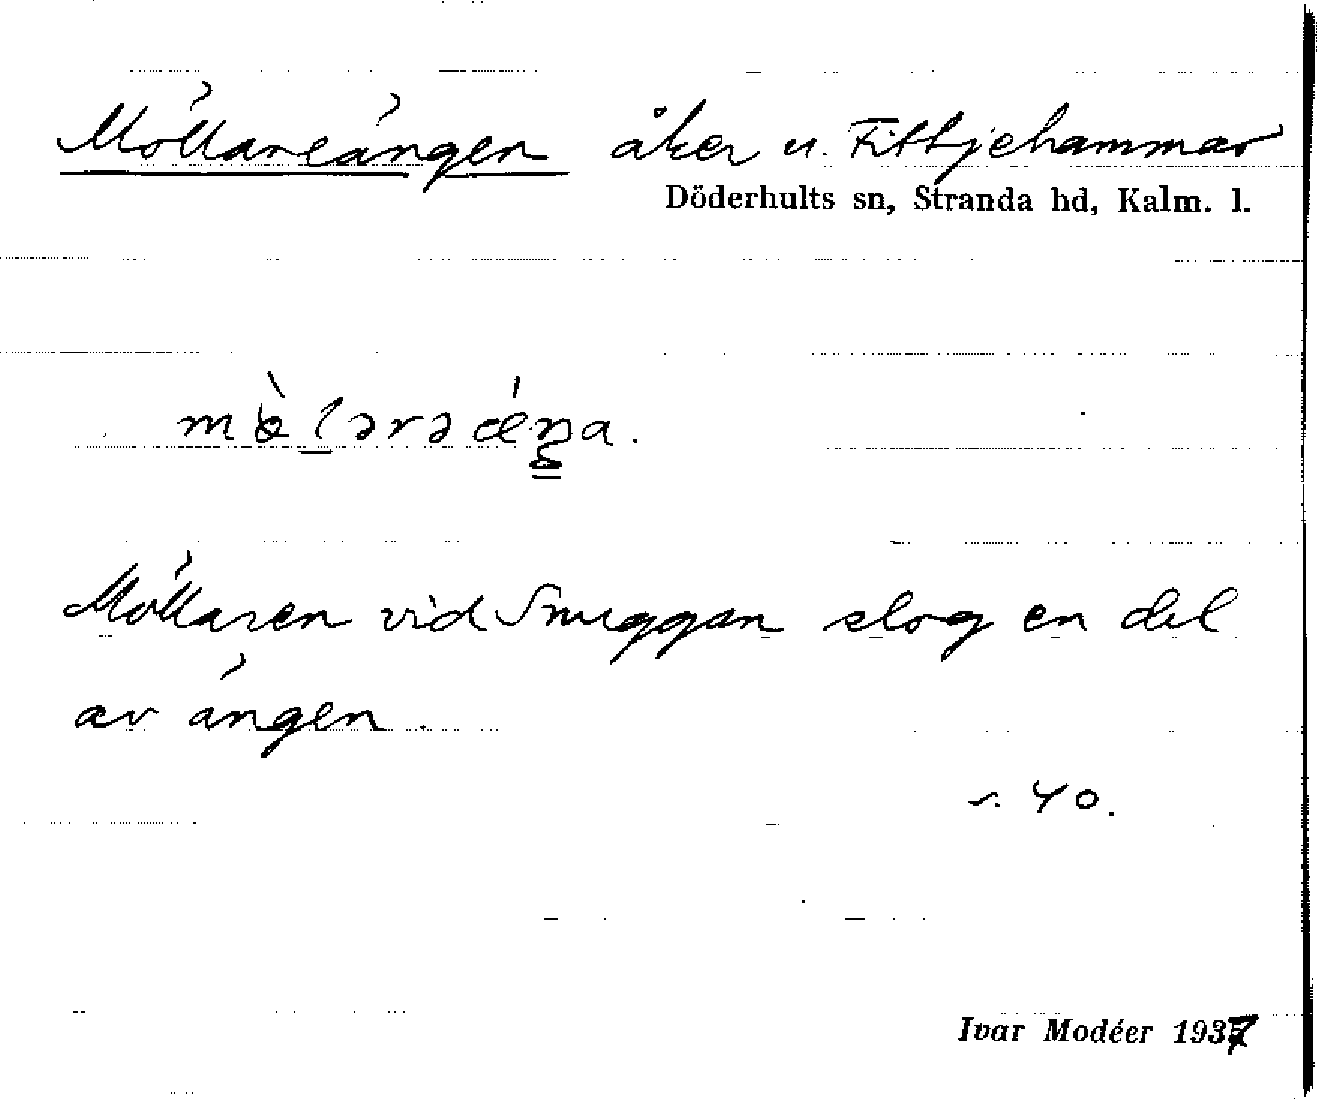 Möllareängen åker u. Fittjehammar
Döderhults sn, Stranda hd, Kalm. l.
Möllaren vid Snuggan slog en del
av ängen.
s. 40.
Ivar Modéer 1937